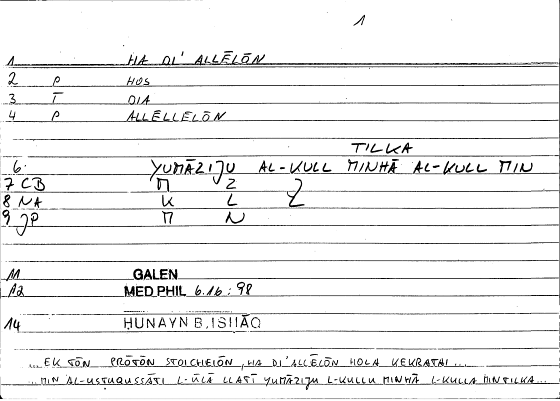 1
1 HA DI' ALLĒLŌN
2 P HOS
3 T DIA
4 P ALLĒLLĒLŌN
TILKA
6. YUMĀZIJU AL-KULL MINHĀ AL-KULL MIN
7 CB M Z Z
8 NA K L Z
9 JP M N
11 GALEN
12 MED.PHIL 6.16 : 98
14 HUNAYN B. ISHĀQ
...EK TŌN PRŌTŌN STOICHEIŌN, HA DI' ALLĒLŌN HOLA KEKRATAI...
...MIN AL-USTUQUSSĀTI L-ŪLĀ LLATĪ YUMĀZIJU L-KULLU MINHĀ L-KULLA MIN TILKA...